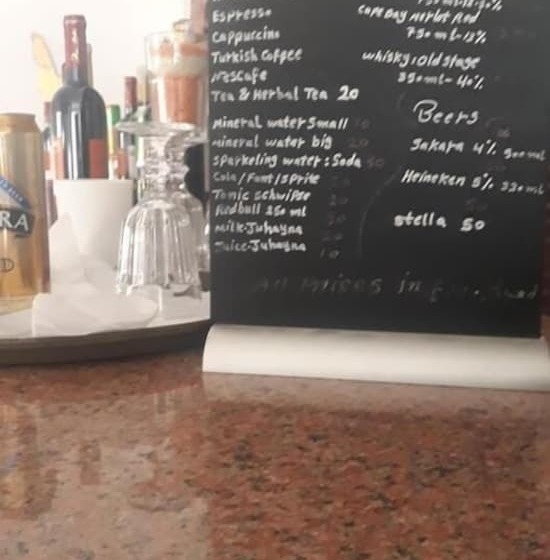 Espresso
Cappuccino
Turkish Coffee
Nescafe
Tea & Herbal Tea 20
Mineral water Small
mineral water big 20
Sparkeling water: Soda
Cola/Fant/Sprite
Tonic schwipse
Redbull 250 ml
Milk-Juhayna
Juice-Juhayna
Cape Bay Merlot Red
750ml-13%
whisky:old stage
350ml-40%
Beers
Sakara 4% 500ml
Heineken 5% 330ml
stella 50
All Prices in
RA